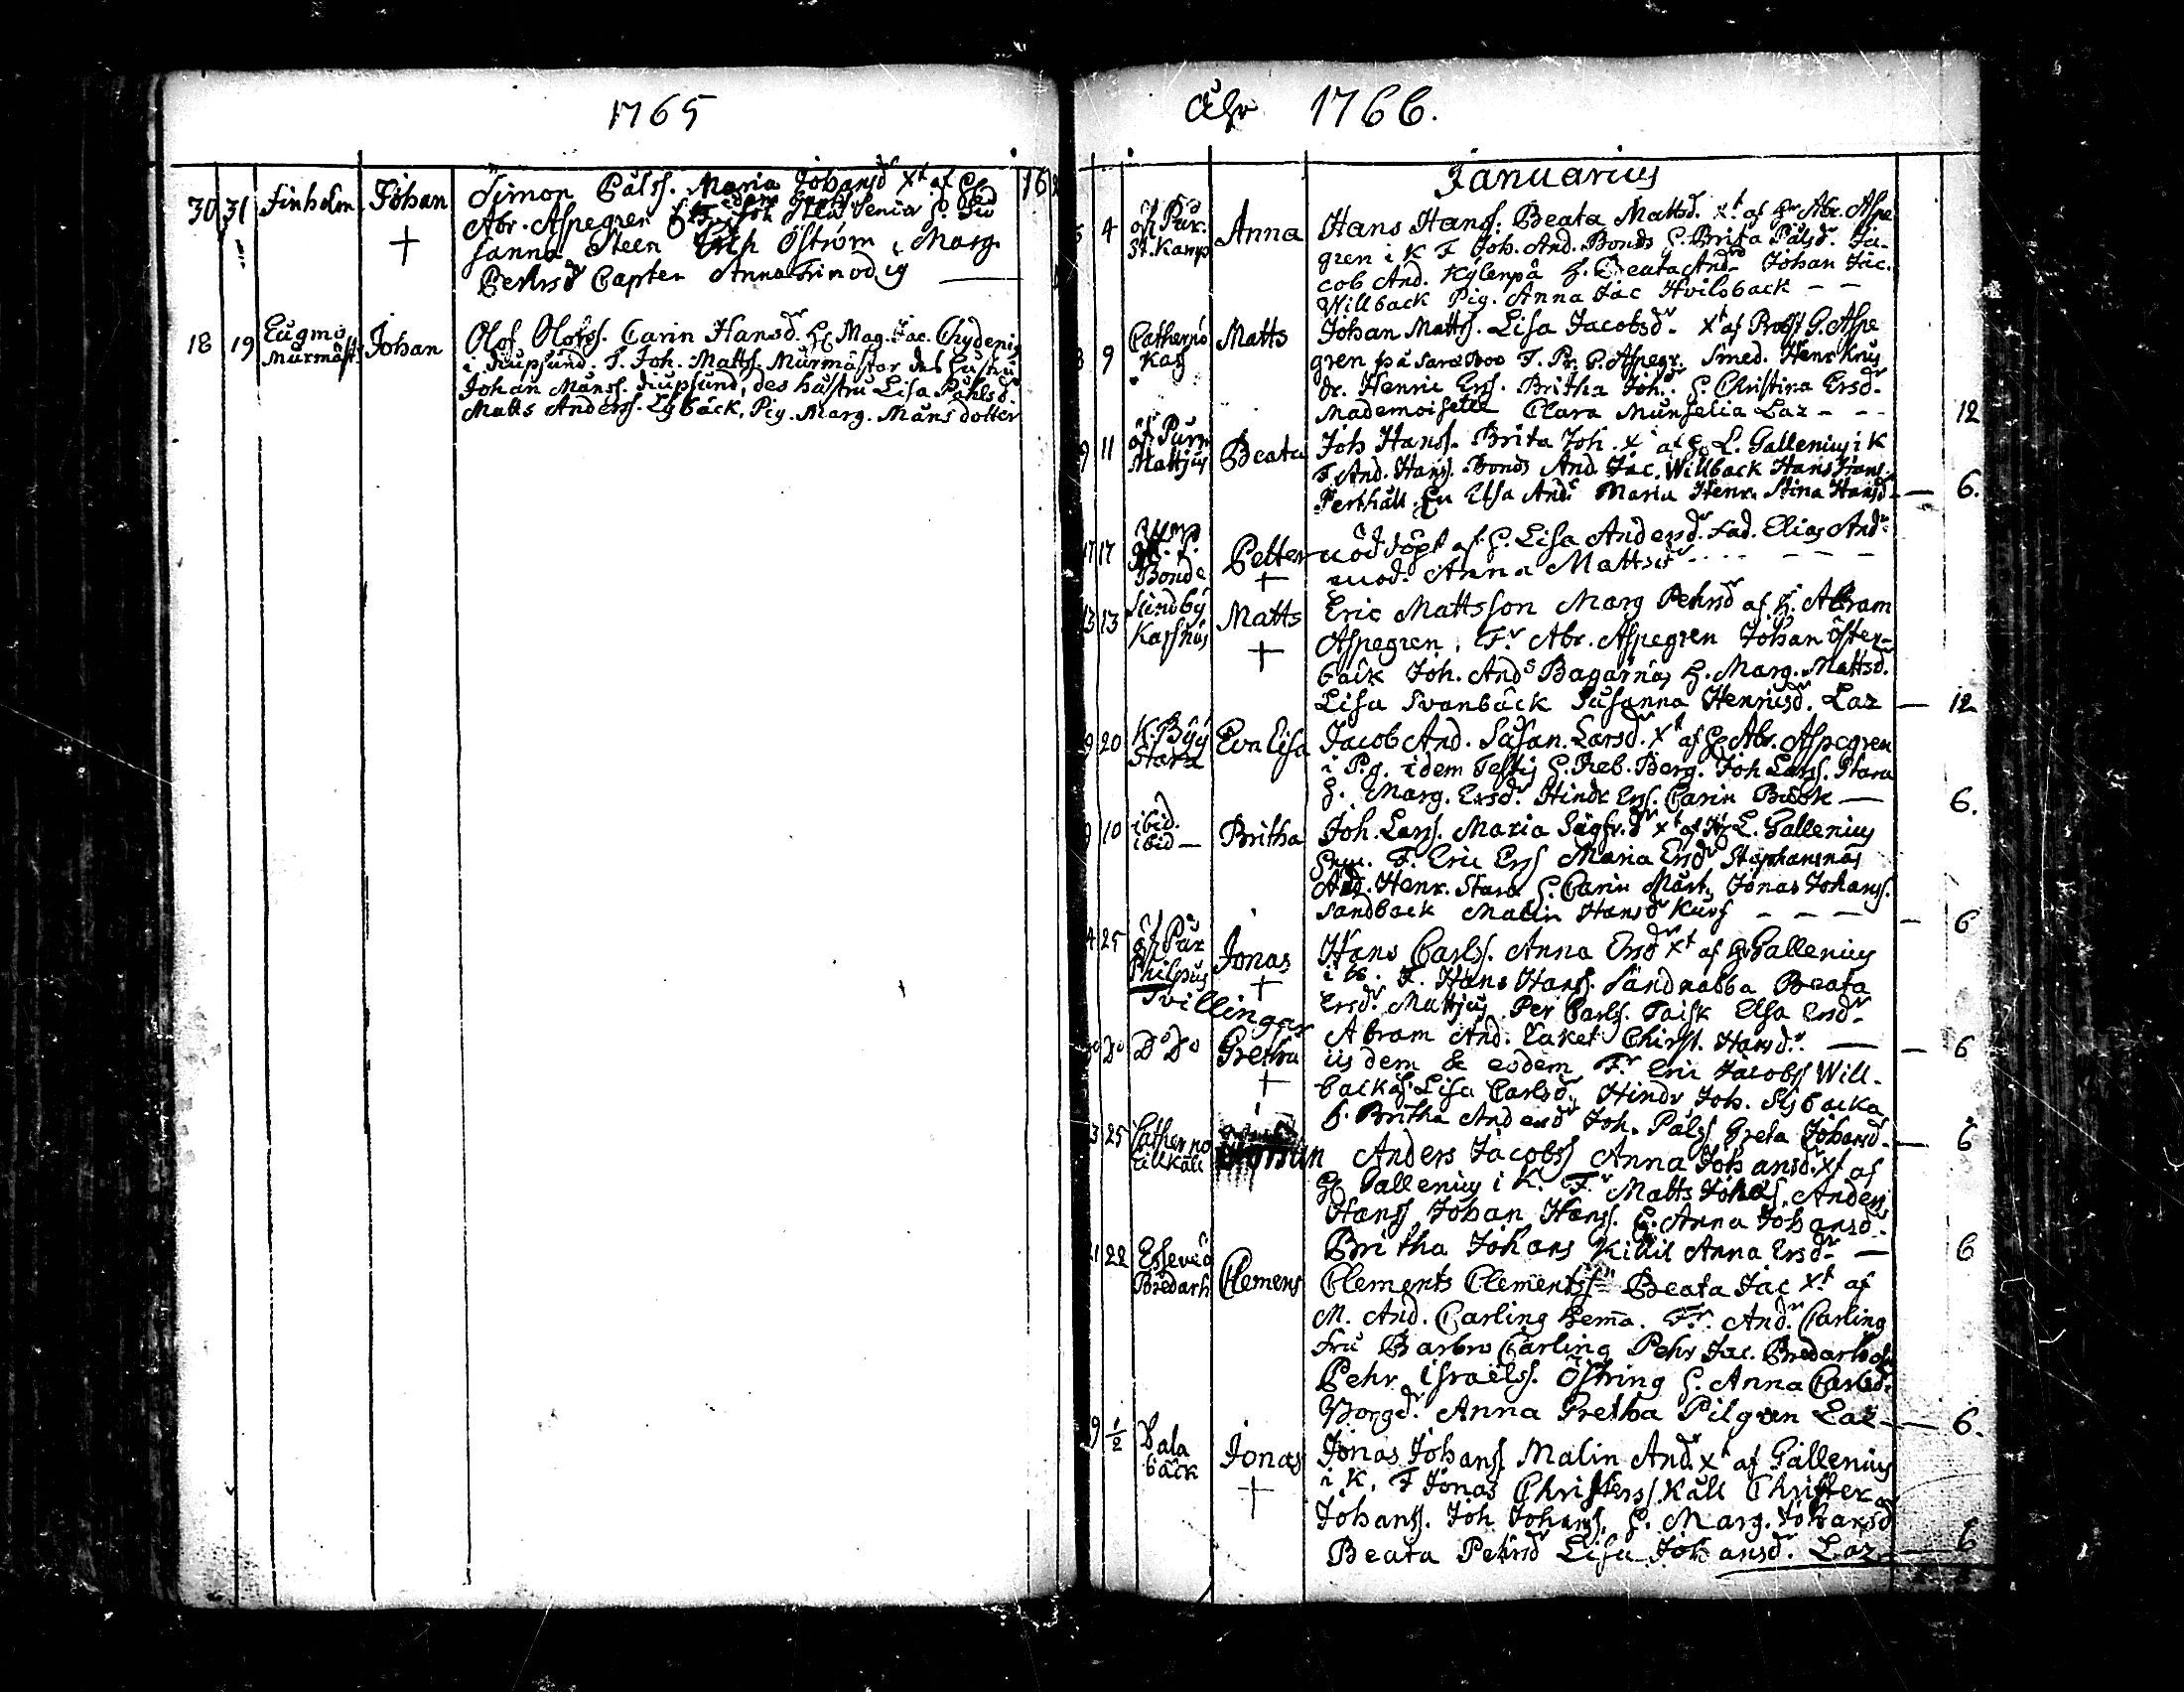 1765
30 31 Finholm Johan Simon Pålss. Maria Johansdr Xt af
Abr. Aspegren
sanna Steen Öström, Marg.
Pehrsdr Capten Anna Finodig
16
18 19 Eugmo Murmäst. Johan Olof Olofss. Carin Hansdr H Mag. Jac. Chydenig
i Kupsund. F. Joh. Matts. Murmästar des hustru
Johan Månss. Kupsund, des hustru Lisa Påhlsdr
Matts Anderss. Lybäck, Pig. Marg. Måns dotter
Åhr 1766.
Januarius
4 öf. Pur. St. Kamp Anna Hans Hanss. Beata Mattsd. xt af Hr Abr. Aspe
gren i K F Joh. And. Bonds H. Brita Pålsdr. Ja-
cob And. Kylenpä H. Beata Andr Johan Jac.
Willback Pig. Anna Jac Hviloback - -
9 Catharnö Kaz Matts Johan Mattss. Lisa Jacobsdr. Xt af Probst G. Aspe
gren på F. Pr. G. Aspegr. Smed. Henr Knus
dr. Henric Erss. Britha Joh. H. Christina Ersdr.
Mademoiselle Clara Munselia Laz - - 12
9 11 öf Purm Mattjus Beata Joh Hanss. Brita Joh. x af H. L. Gallenius i K
F. And. Hanss. Bonds And Jac. Willback Hans Frans.
Perthäll. Elsa Andr Maria Henr. Stina Hansdr — 6.
17 17 Bonde Petter + nöddöpt af H. Lisa Andersdr. Fad. Elias Andr.
mod. Anna Mattsdr - - -
13 13 Sundby Kasshus Matts + Eric Mattsson Marg Pehrsdr af H. Abram
Aspegren. Fr. Abr. Aspegren Johan Öster-
back Joh. Ands Bagarnäs H. Marg. Mattsdr.
Lisa Svanbäck Susanna Henricsdr. Laz — 12
9 20 K. Byy Stara Eva Lisa Jacob And. Susan. Larsdr. Xt af H Abr. Aspegren
i P.g. idem Testis H. Reb. Berg. Joh Larss. Stara
H. Marg. Ersdr. Hindr Erss. Carin Back — 6.
9 10 ibid. ibid — Britha Joh. Larss. Maria Sigfr.dr xt af H L. Gallenius
F. Eric Erss Maria Ersdr Staphansnäs
And. Henr. Stara H. Carin Märt. Jonas Johanss.
Sandback Malin Hansdr Kurs - - - 6
4 25 öf Pur Philpus Jonas + Hans Carlss. Anna Ersdr xt af H Gallenius
i K. F. Hans Hanss. Sandnabba Beata
Tvillingar Ersdr. Mattjus Per Carlss. Taisk Elsa Ersdr.
Abram And. Laket Christ. Hansdr. — 6
Do Do Do Do Gretha + iisdem & eodem Fr. Eric Jacobss Will-
backa H. Lisa Carlsdr. Hindr Joh. Slybacka
H. Britha Andersdr Joh. Pålss Greta Johansdr. — 6
3 25 Catherno Lillkäll Anders Jacobss Anna Johansdr. Xt af
H Gallenius i K. Fr. Matts Johas. Anders
Hanss Johan Hanss. H. Anna Johansdr.
Britha Johans Killil Anna Ersdr. — 6
21 22 Essevia Bredarh Clemens Clements Clementss Beata Jac Xt af
M. And. Carling hema. Fr. Andr. Carling
Fru Barbro Carling Pehr Jac. Bredarhols
Pehr Israelss. Östring H. Anna Carlsdr.
Borgd. Anna Gretha Pilgren Laz — 6.
9 1/2 Dala bäck Jonas + Jonas Johanss Malin Andr. xt af Gallenius
i K. F Jonas Christerss. Käll Christer
Johanss. Joh Johanss. H. Marg. Johansdr
Beata Pehrsdr Lisa Johansdr. Laz — 6